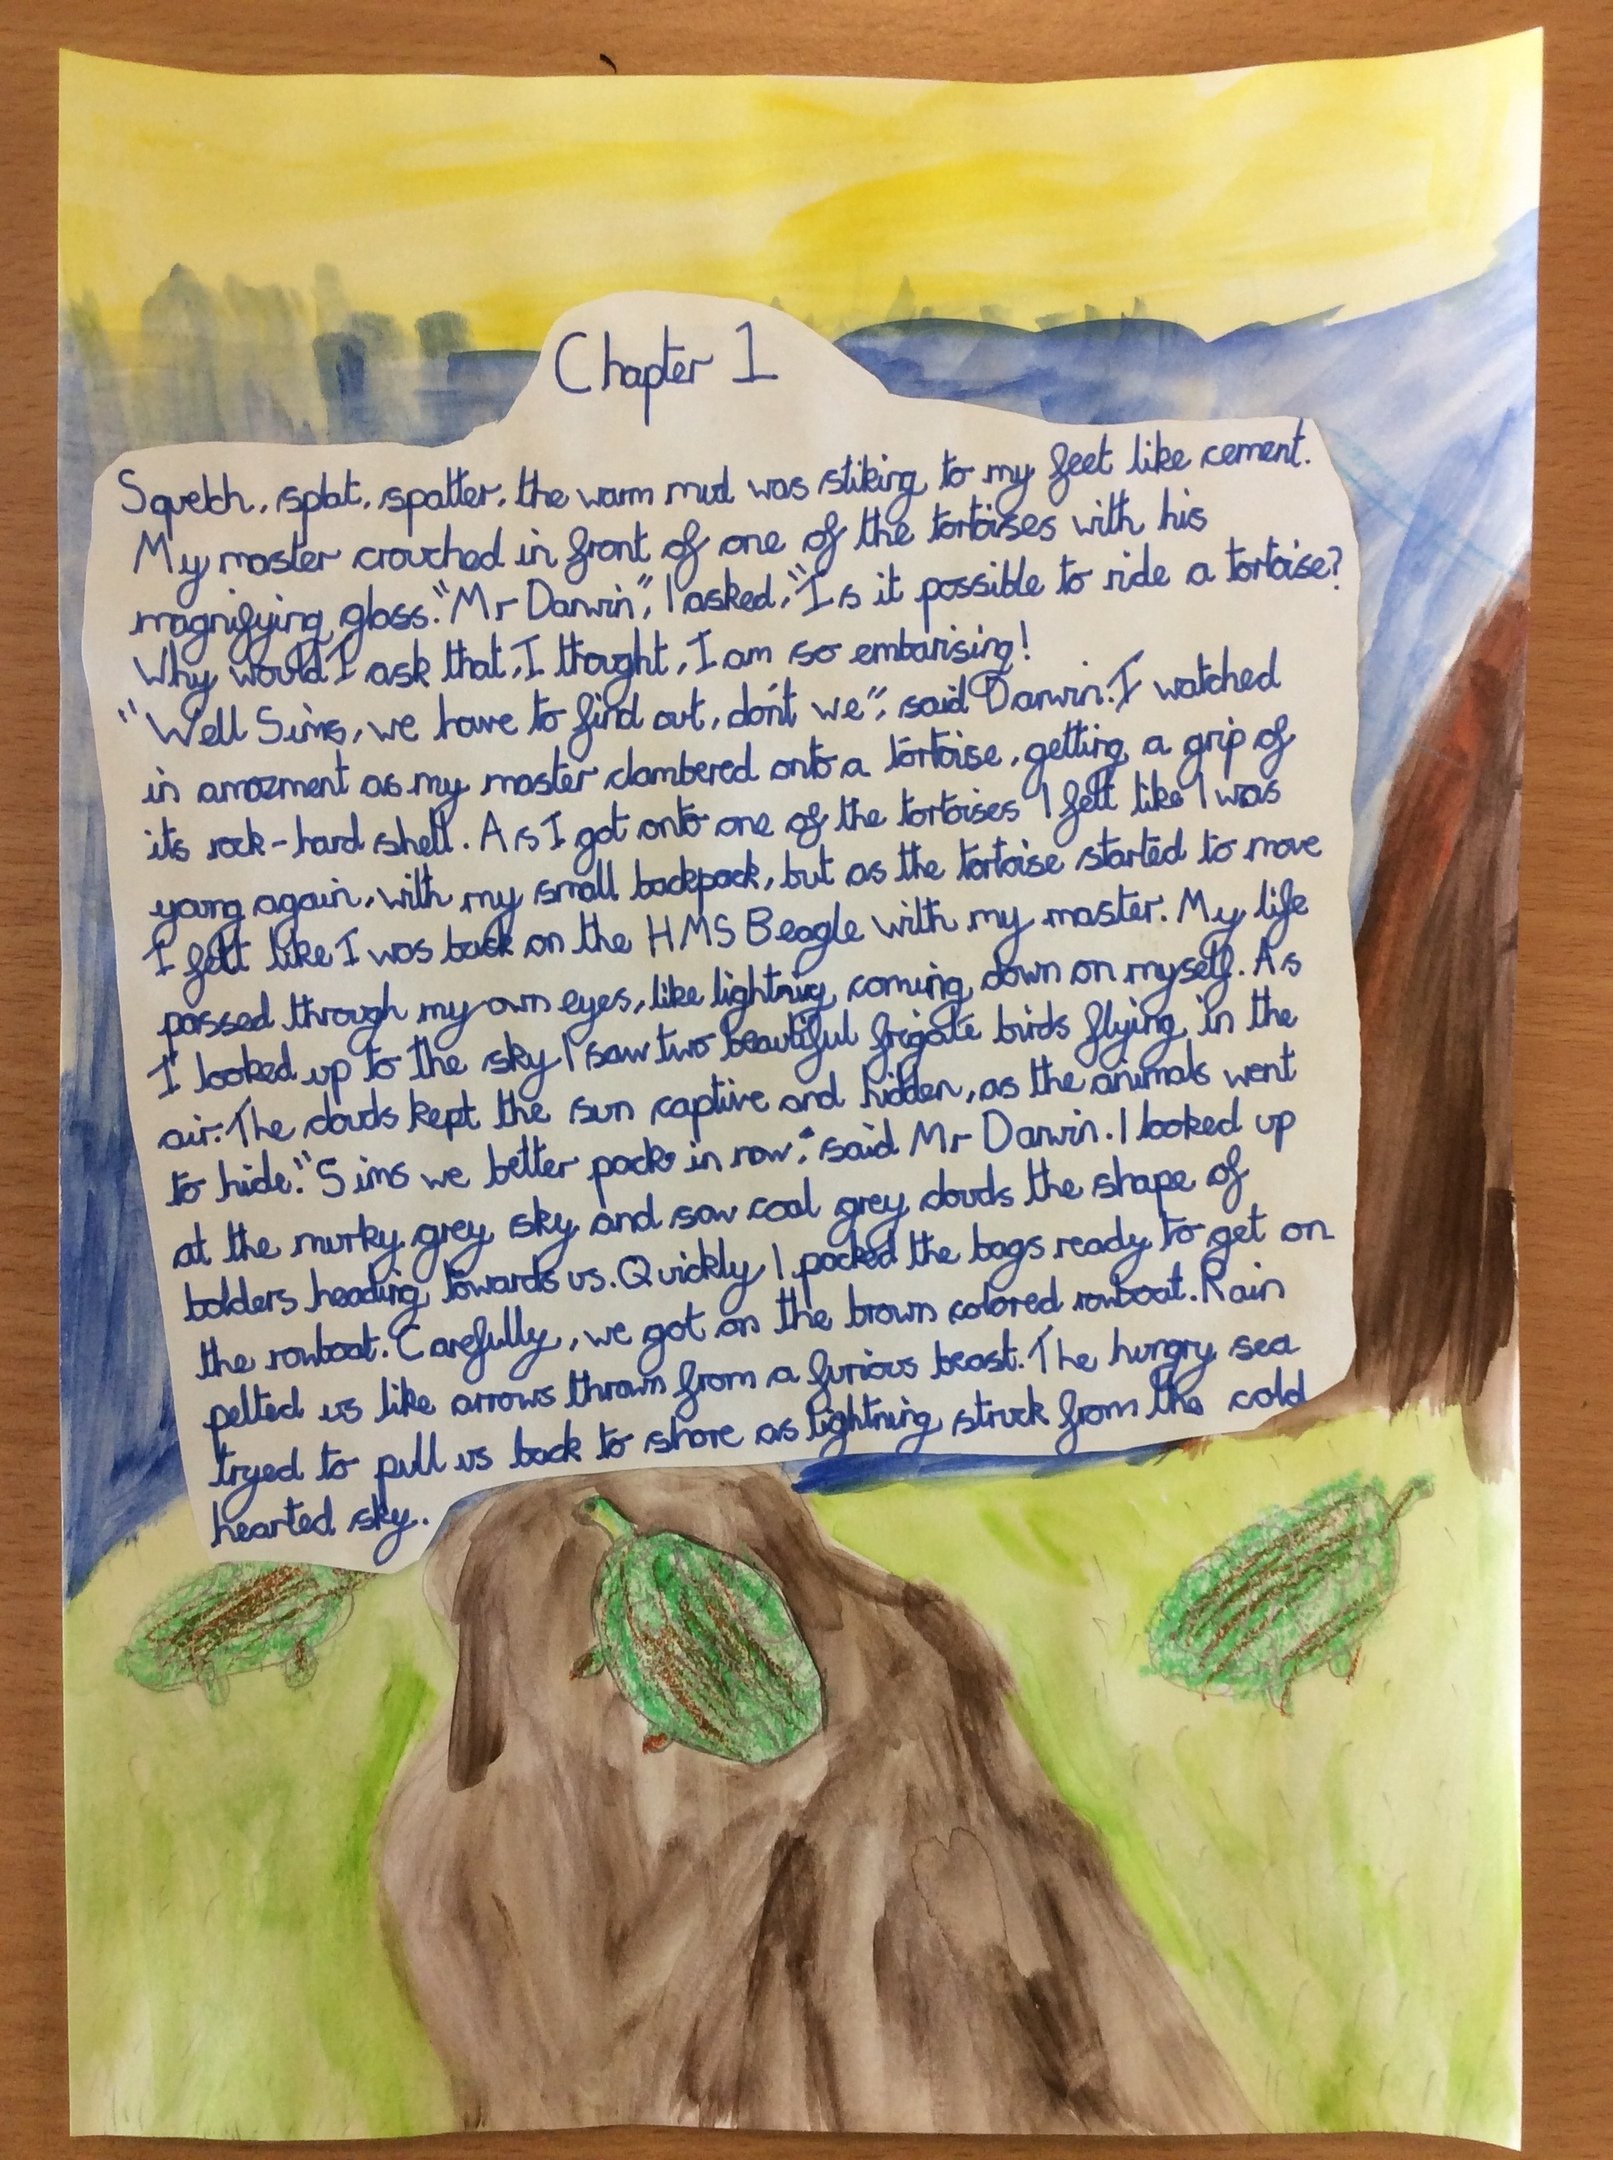 Chapter 1
Squelch, splat, spatter, the warm mud was stiking to my feet like cement.
My master crouched in front of one of the tortoises with his
magnifying glass. "Mr Darwin", I asked, "Is it possible to ride a tortoise?
Why would I ask that, I thought, I am so embarising!
"Well Sims, we have to find out, don't we", said Darwin. I watched
in amazment as my master clambered onto a tortoise, getting a grip of
its rock-hard shell. As I got onto one of the tortoises I felt like I was
young again, with my small backpack, but as the tortoise started to move
I felt like I was back on the HMS Beagle with my master. My life
passed through my own eyes, like lightnig coming down on myself. As
I looked up to the sky I saw two beautiful frigate birds flying in the
air. The clouds kept the sun captive and hidden, as the animals went
to hide. "Sims we better pack in now." said Mr Darwin. I looked up
at the murky grey sky and saw coal grey clouds the shape of
bolders heading towards us. Quickly I packed the bags ready to get on
the rowboat. Carefully, we got on the brown colored rowboat. Rain
pelted us like arrows thrown from a furious beast. The hungry sea
tryed to pull us back to shore as lightning struck from the cold
hearted sky.